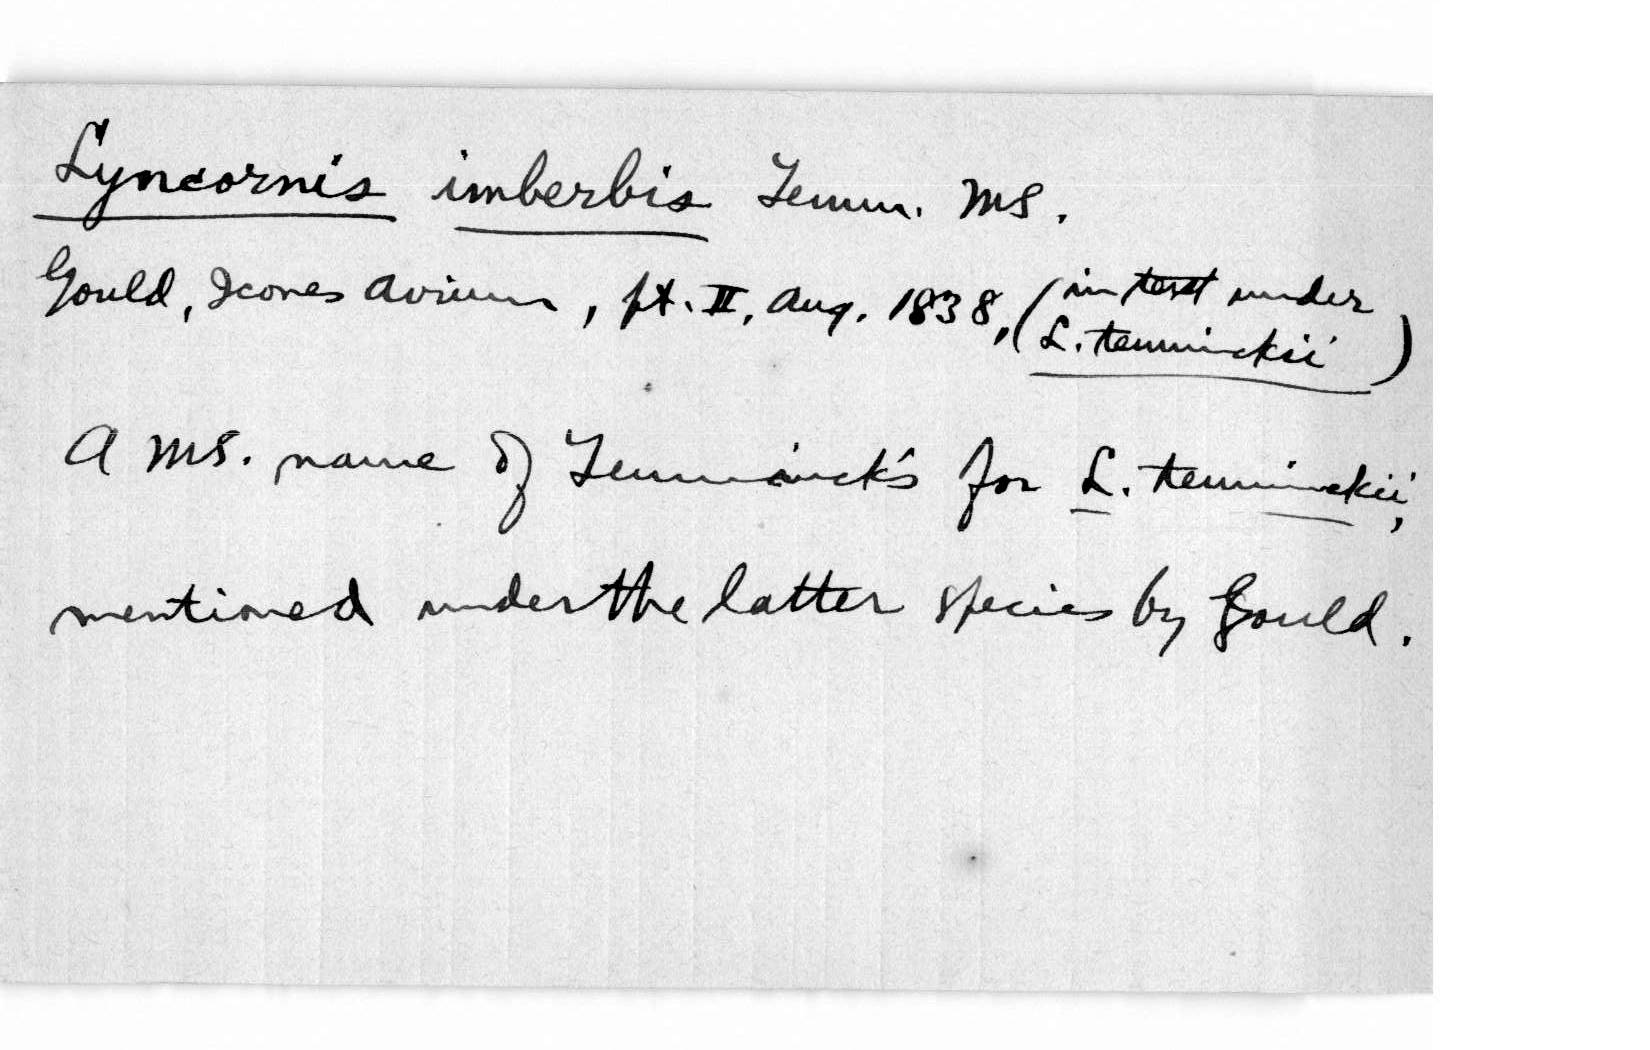 Lyncornis imberbis Temm. MS.
Gould, Icones Avium, pt. II, Aug. 1838, (in text under
L. temminckii)
A MS. name of Temminck's for L. temminckii,
mentioned under the latter species by Gould.